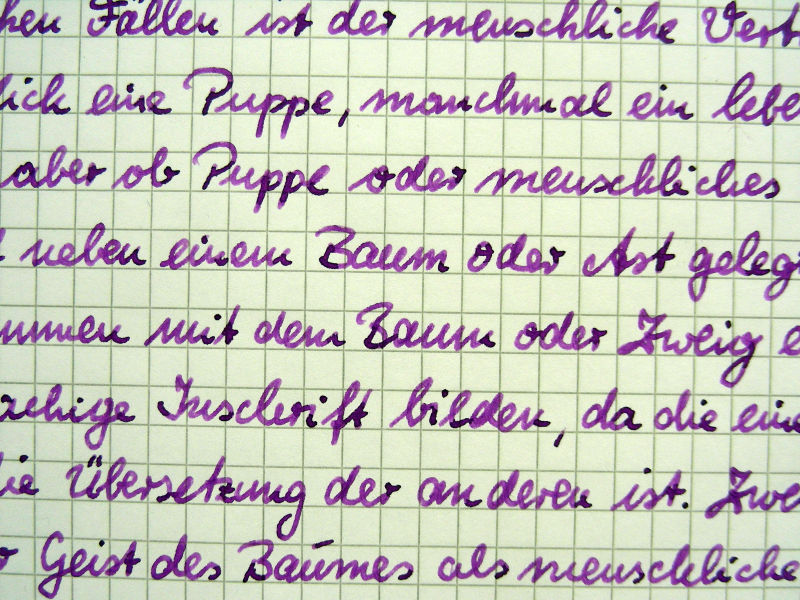 hen Fällen ist der menschliche Vert
lich eine Puppe, manchmal ein lebe
aber ob Puppe oder menschliches
neben einem Baum oder Ast geleg
mmen mit dem Baum oder Zweig e
achige Inschrift bilden, da die eine
ie Übersetzung der anderen ist. Zwe
r Geist des Baumes als menschliche